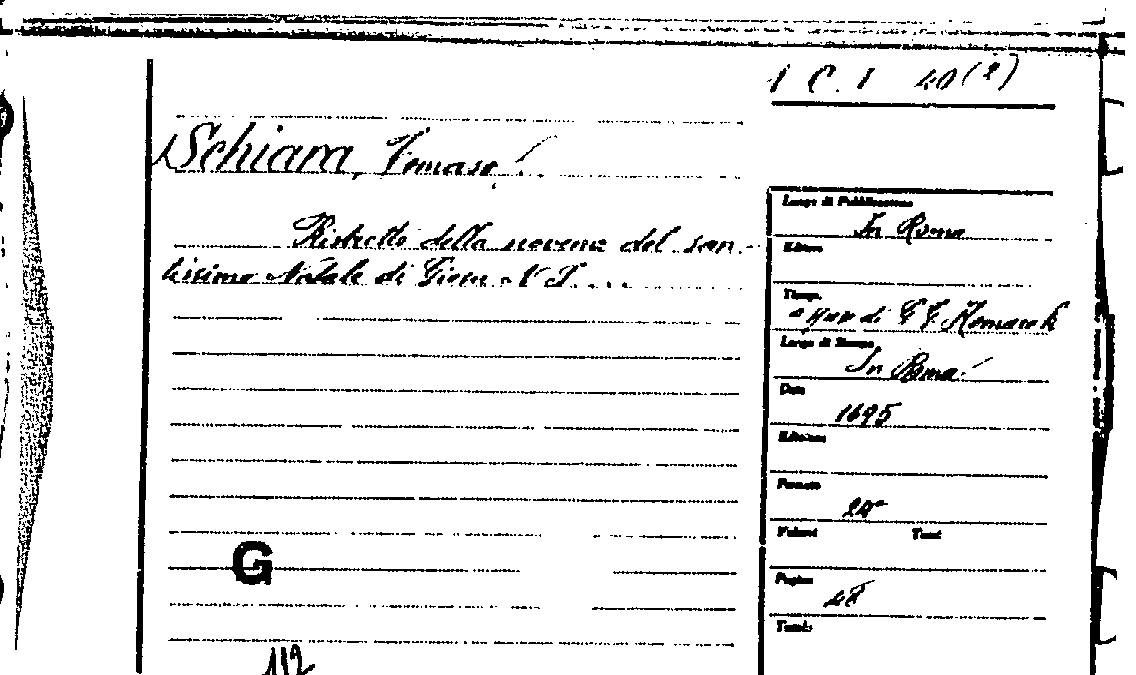 1 C. 1 40(2)
Schiara, Tomaso
Ristretto della novena del san
tissimo Natale di Giesu N S....
Luogo di Pubblicazione
In Roma
Editore
Tipog.
a spese di G F Komarek
Luogo di Stampa
In Roma
Data
1695
Edizione
Formato
24°
Volumi Tomi
Pagine
48
Tavole
G
112